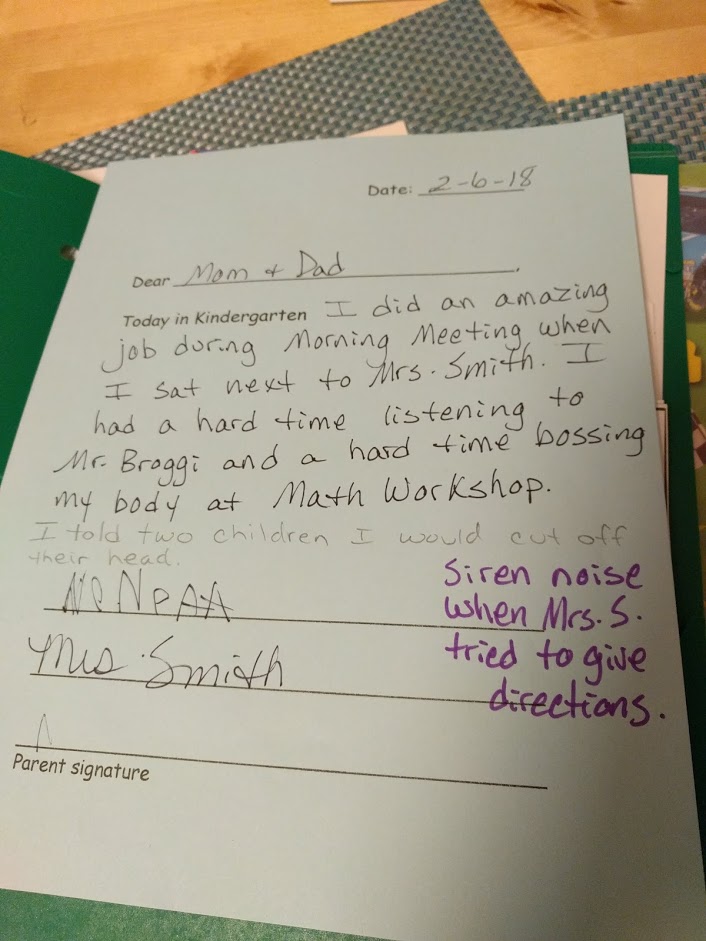 Date: 2-6-18
Dear Mom + Dad.
Today in Kindergarten I did an amazing
job during Morning Meeting when
I sat next to Mrs. Smith. I
had a hard time listening to
Mr. Broggi and a hard time bossing
my body at Math Workshop.
I told two children I would cut off
their head.
Siren noise
when Mrs. S.
tried to give
directions.
Mrs. Smith
Parent signature